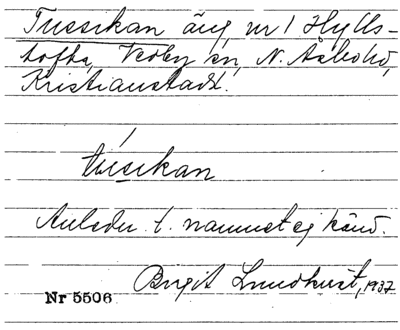 Tussikan äng nr 1 Hylls-
tofta, Verby sn, N. Åsbohd,
Kristianstadt.
tusikan
Anledn t. namnet ej känd.
Birgit Lundkvist, 1937
Nr 5506